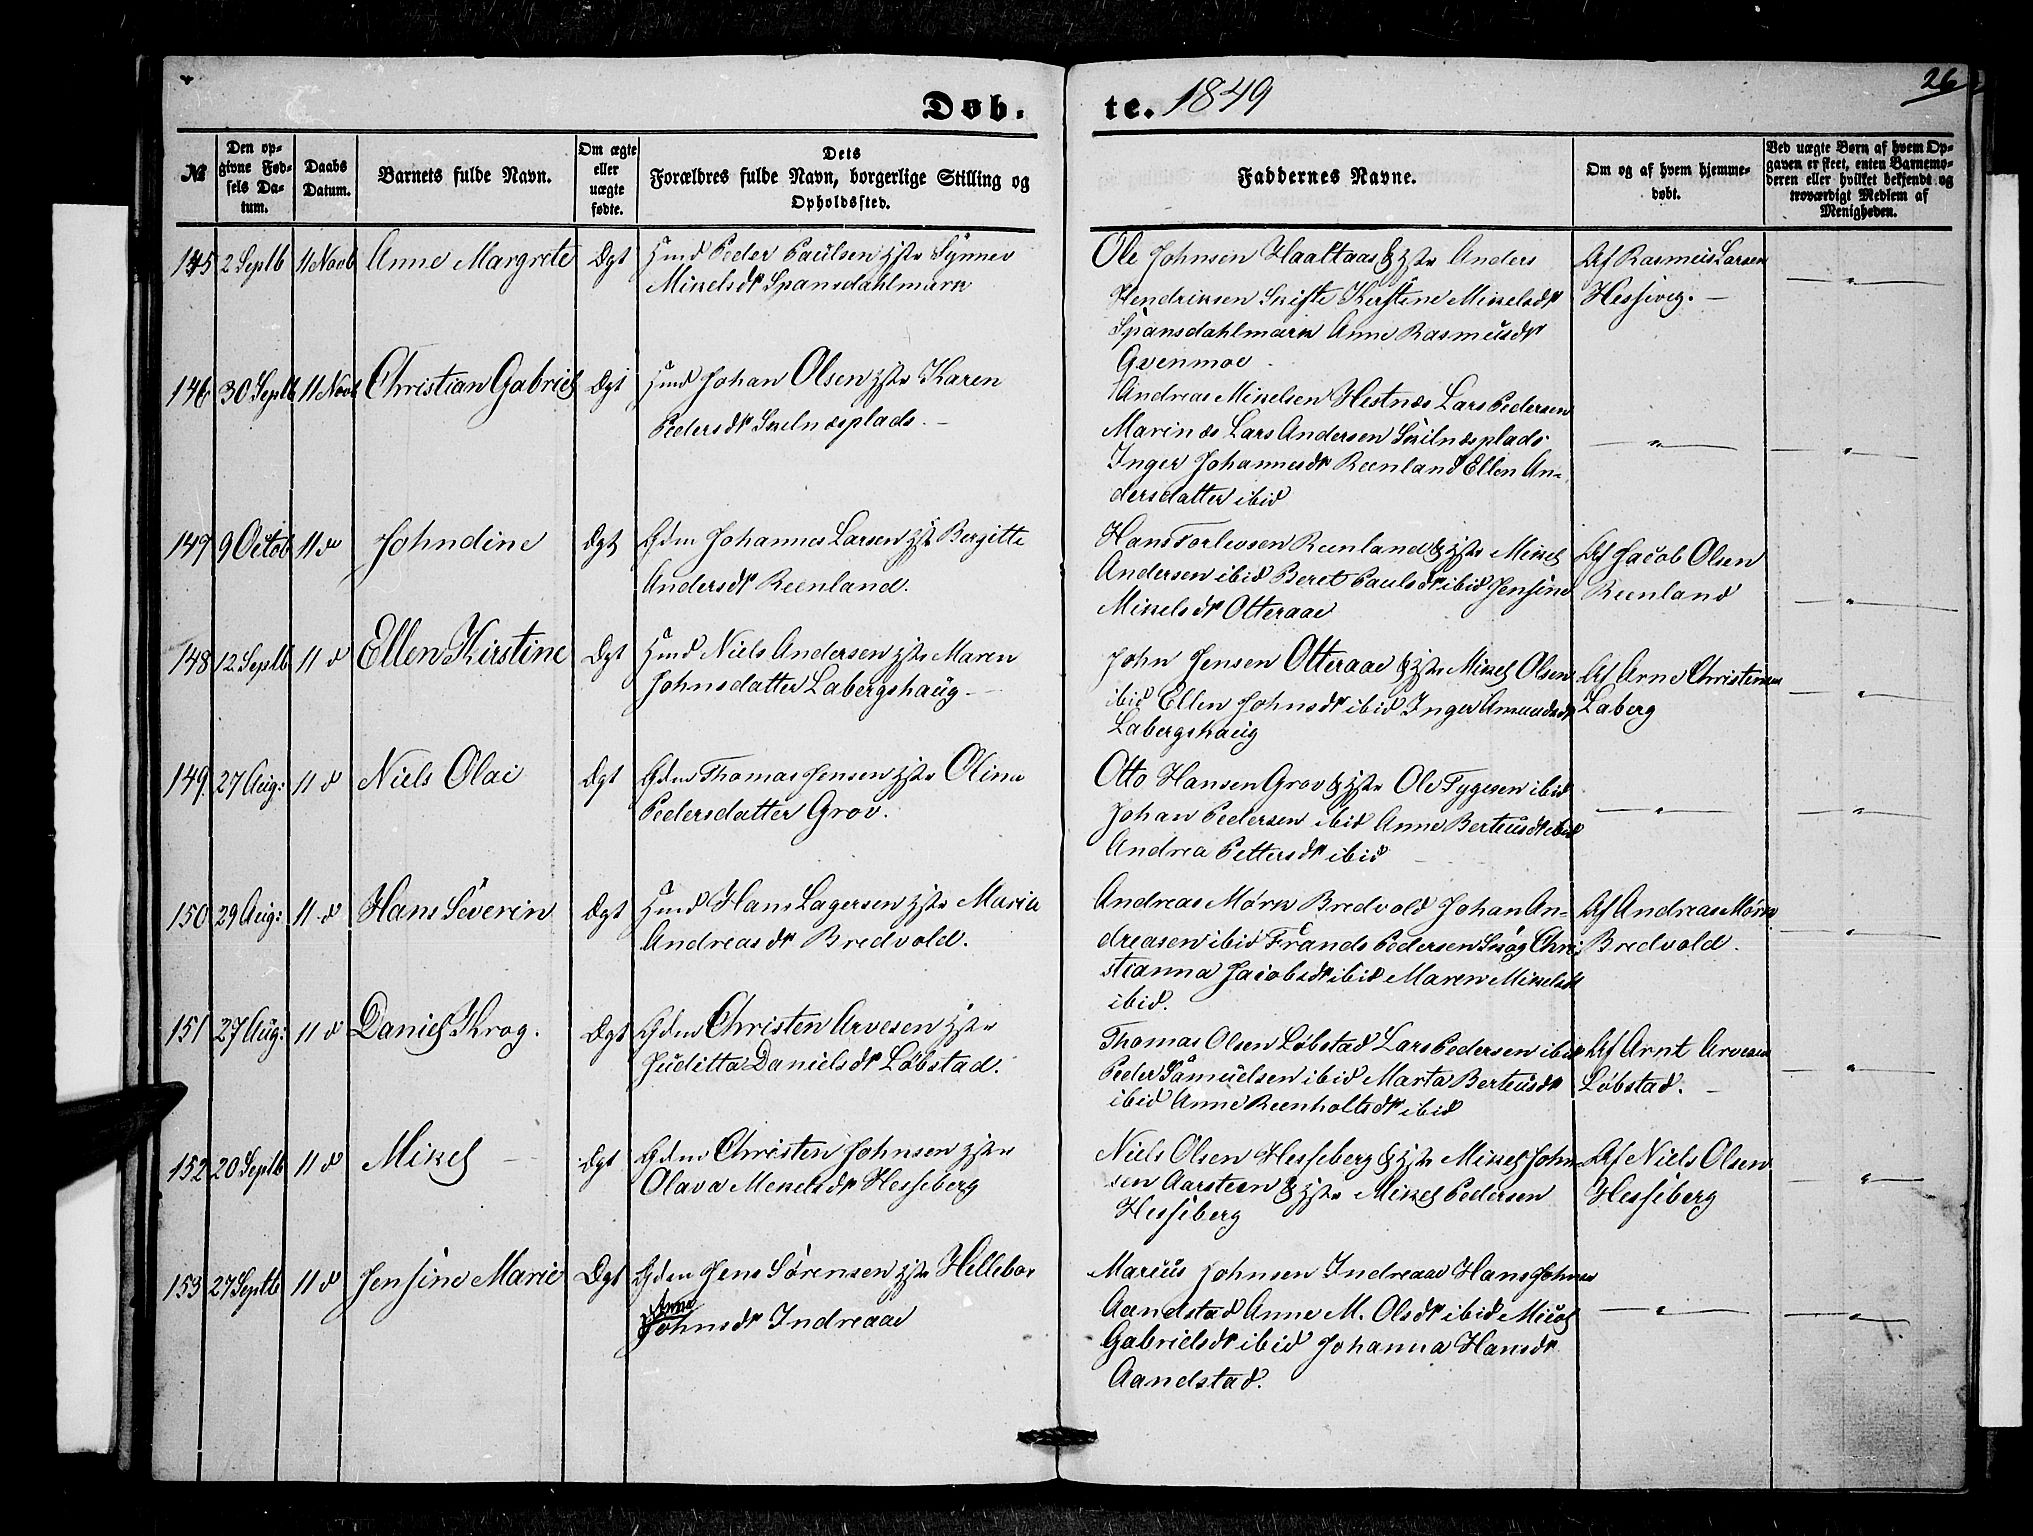 Døb.
te. 1849
26
№
Den op-
givne Fød-
sels Da-
tum.
Daabs
Datum.
Barnets fulde Navn.
Om ægte
eller
uægte
fødte.
Dets
Forældres fulde Navn, borgerlige Stilling og
Opholdssted.
Faddernes Navne.
Om og af hvem hjemme-
døbt.
Ved uægte Børn af hvem Op-
gaven er skeet, enten Barnemo-
deren eller hvilket bekjendt og
troværdigt Medlem af
Menigheden.
145 2 Septb 11 Novb Anne Margrete Ægt Hmd Peder Paulsen Hstr Synnev
Mikelsdr Spansdahlmark
Ole Johnsen Haaltaas & Hstr Anders
Hendriksen Skifte Kirstine Mikelsdr
Spansdahlmark Anne Rasmusdr
Qvenmoe
Af Rasmus Larsen
Hessevig. — "
146 30 Septb 11 Novb Christian Gabriel Ægt Hmd Johan Olsen Hstr Karen
Pedersdr Skelnæsplads. —
Andreas Mikelsen Hestnæs Lars Pedersen
Marinæs Lars Andersen Skilnæsplads
Inger Johannesdr Reenland Ellen An-
dersdatter ibid
— " — — " —
147 9 Octob 11 d Johndine Ægt Gdm Johannes Larsen Hstr Bergitte
Andersdr Reenland.
Hans Torlevsen Reenland & Hstr Mikel
Andersen ibid Beret Paulsdr ibid Jensine
Mikelsdr Otteraae
Af Jacob Olsen
Reenland — " —
148 12 Septb 11 d Ellen Kirstine Ægt Hmd Niels Andersen Hstr Maren
Johnsdatter Labergshaug —
John Jensen Otteraae & Hstr Mikel Olsen
ibid Ellen Johnsdr ibid Inger Amundsdr
Labergshaug
Af Arne Christensen
Laberg — " —
149. 27 Aug: 11 d Niels Olai Ægt Gdm Thomas Jensen Hstr Oline
Pedersdatter Grov.
Otto Hansen Grov & Hstr Ole Tygesen ibid
Johan Pedersen ibid Anne Berteusdr ibid
Andrea Pettersdr ibid
— " — — " —
150 29 Aug: 11 d Hans Severin Ægt Hmd Hans Lagersen Hstr Maria
Andreasdr Bredvold.
Andreas Mørk Bredvold Johan An-
dreasen ibid Frands Pedersen Skog Chri-
stianna Jacobsdr ibid Maren Mikelsdr
ibid.
Af Andreas Mørk
Bredvold. — " —
151 27 Aug: 11 d Daniel Krog. Ægt Gdm Christen Arvesen Hstr
Juditta Danielsdr Løbstad.
Thomas Olsen Løbstad Lars Pedersen ibid
Peder Samuelsen ibid Marta Berteusdr
ibid Anne Reenholtsdr ibid
Af Arnt Arvesen
Løbstad. — " —
152 20 Septb 11 d Mikel — Ægt Gdm Christen Johnsen Hstr
Olava Mekelsdr Hesseberg
Niels Olsen Hesseberg & Hstr Mikel John-
sen Aarsteen & Hstr Mikel Pedersen
Hesseberg
Af Niels Olsen
Hesseberg — " —
153 27 Septb 11 d Jensine Marie Ægt Gdm Jens Sørensen Hstr Hellebor
Anne
Johnsdr Indreaae
Marius Johnsen Indreaae Hans Johnsen
Aandstad Anne M. Olsdr ibid Micol
Gabrielsdr ibid Johanna Hansdr
Aandstad.
— " — — " —